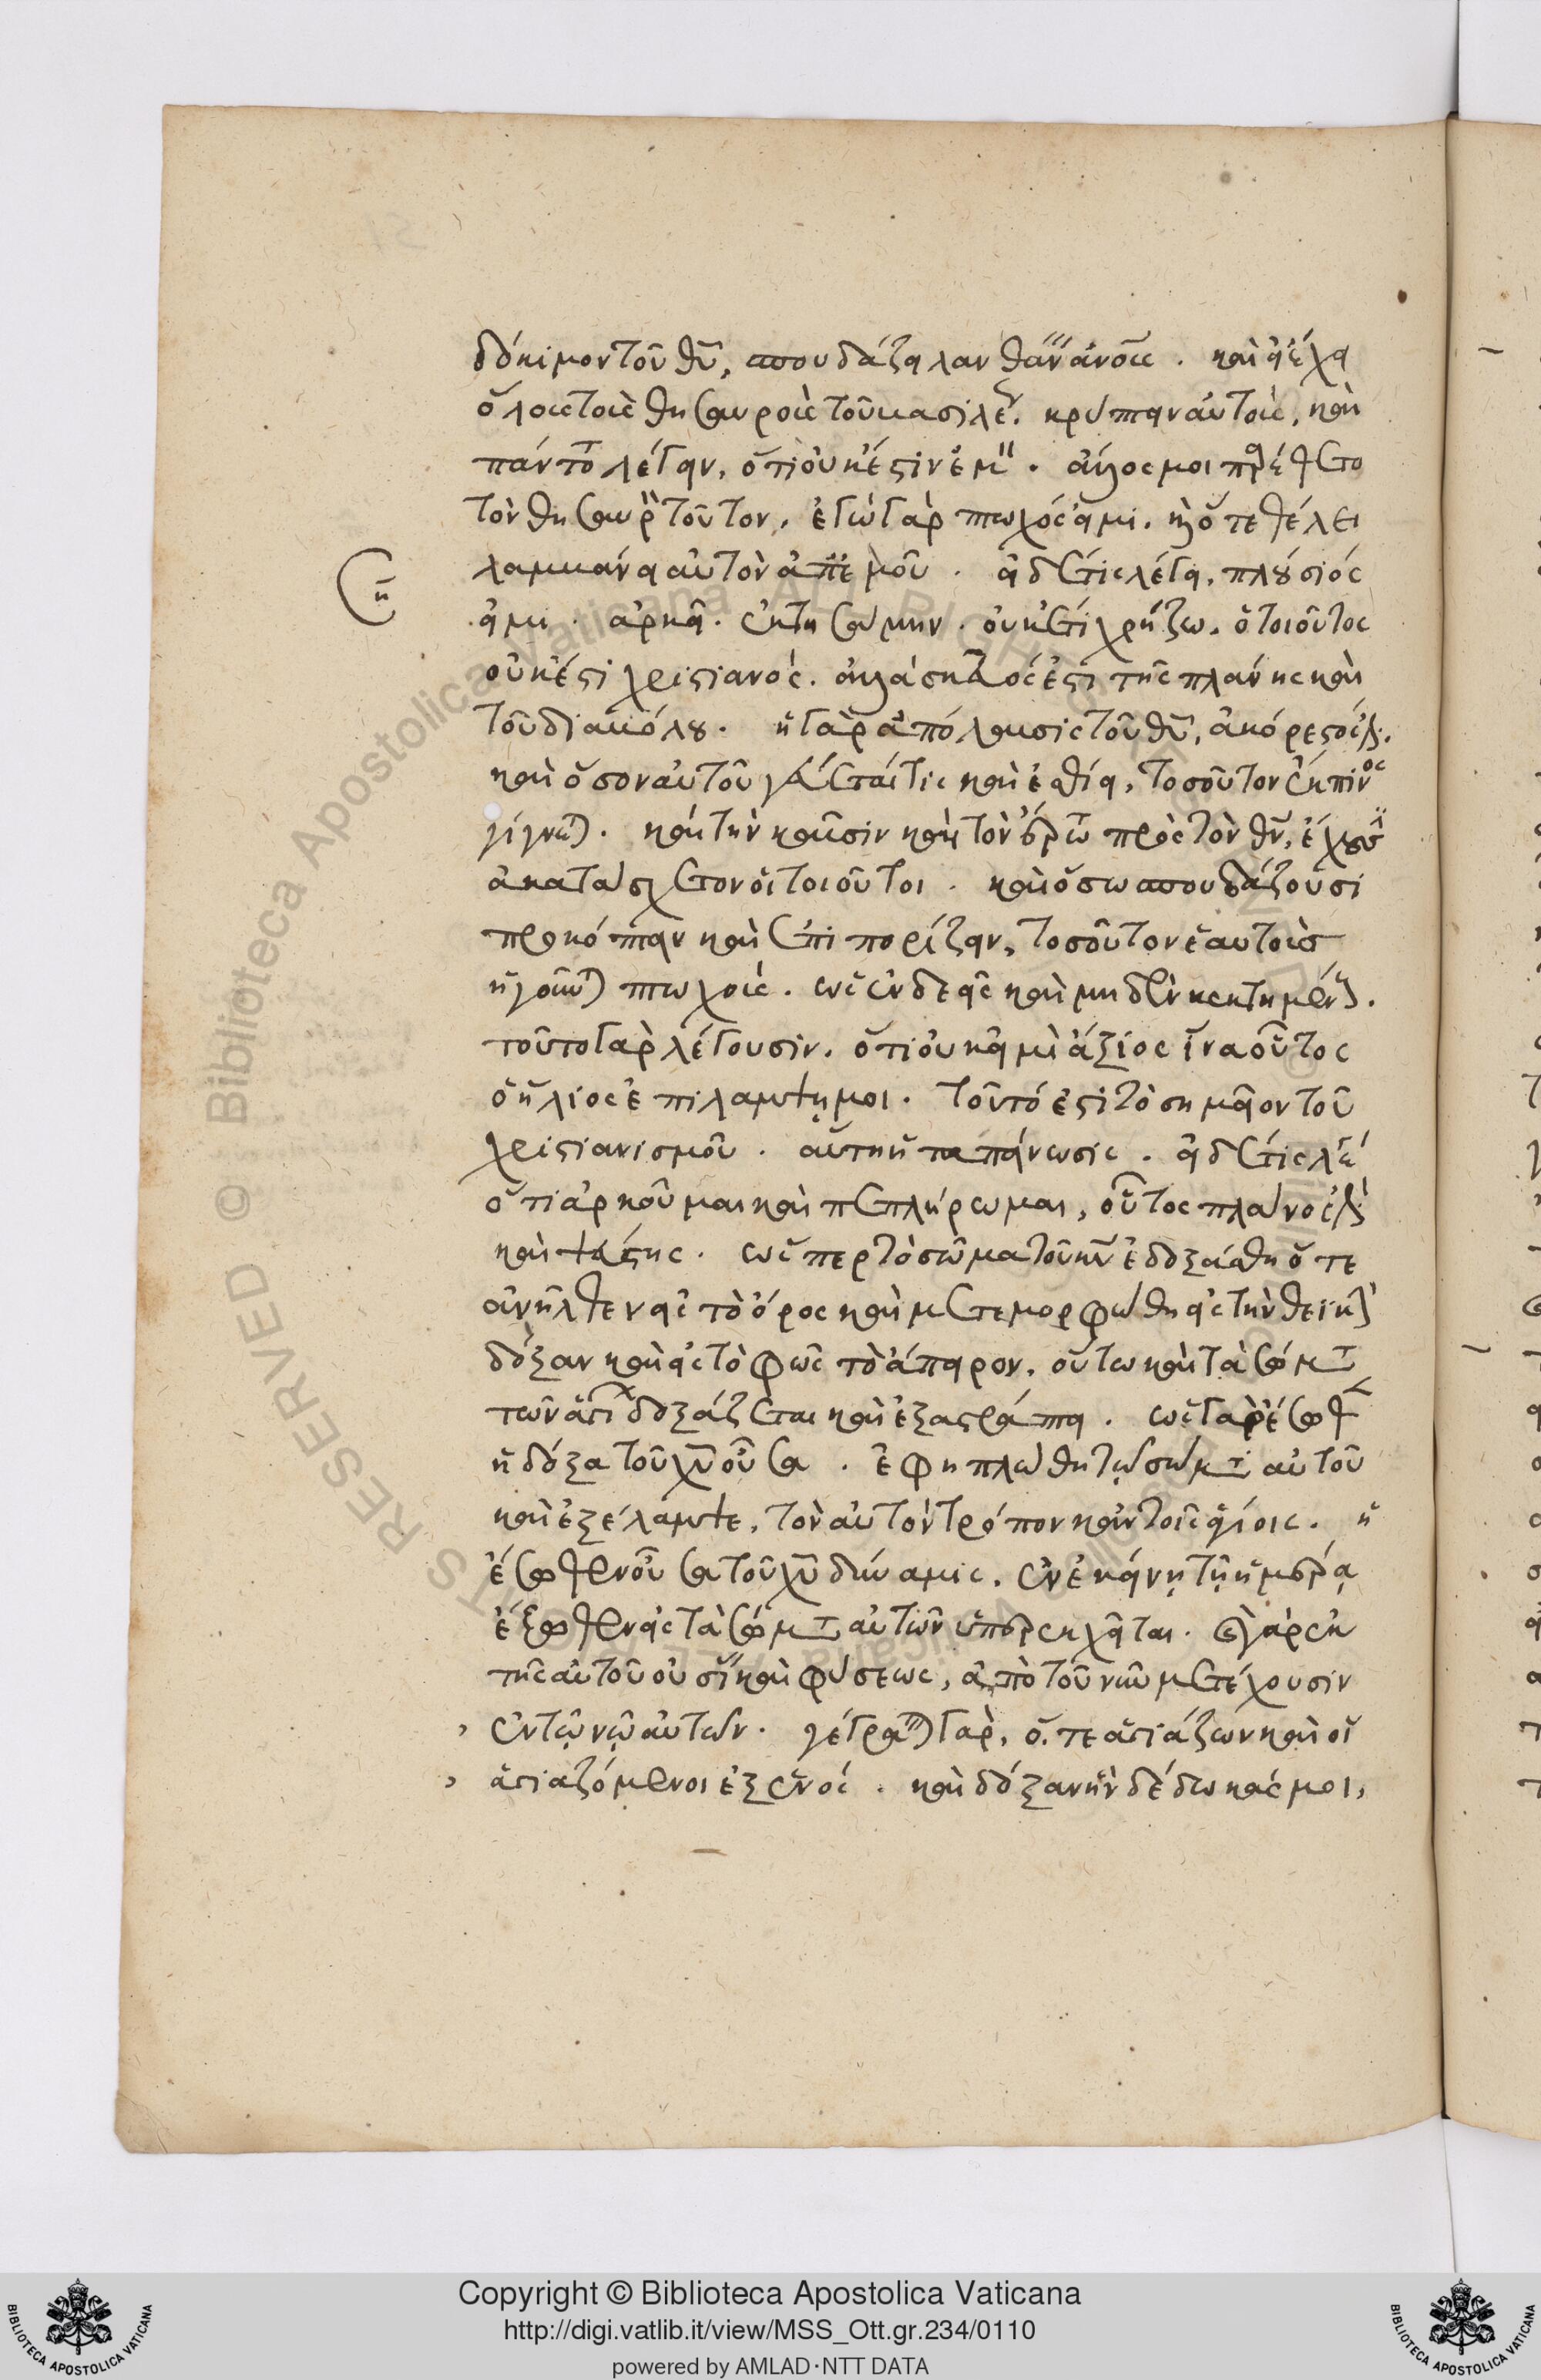 δόκιμον τοῦ θυ, σπουδάζει λανθάνειν ἀνοις. καὶ εἰ ἔχει
ὅλους τοὺς θησαυροὺς τοῦ βασιλέως κρύπτειν αὐτούς, καὶ
πάντοτε λέγειν, ὅτι οὐκ ἔστιν ἐμὸς. ἄλλος μοι παρέθετο
τὸν θησαυρὸν τοῦτον. ἐγὼ γὰρ πτωχός εἰμι. καὶ ὅτε θέλει
λαμβάνει αὐτὸν ἀπ' ἐμοῦ. εἰ δέ τις λέγει, πλούσιός
εἰμι. ἀρκεῖ. ἐκτησάμην. οὐκέτι χρήζω. ὁ τοιοῦτος
οὐκ ἔστι χριστιανός. ἀλλὰ σκεῦος ἐστὶ τῆς πλάνης καὶ
τοῦ διαβόλου. ἡ γὰρ ἀπόλαυσις τοῦ θυ, ἀκόρεστός ἐστι.
καὶ ὅσον αὐτοῦ γεύεταί τις καὶ ἐσθίει, τοσοῦτον ἔκπεινος
γίγνεται. καὶ τὴν καῦσιν καὶ τὸν ἔρωτα πρὸς τὸν θν, ἔχουσιν
ἀκατάσχετον οἱ τοιοῦτοι. καὶ ὅσω σπουδάζουσι
προκόπτειν καὶ ἐπιπορίζειν, τοσοῦτον ἑαυτοὺς
ἡγοῦνται πτωχούς. ὡς ἐνδεεῖς καὶ μηδὲν κεκτημένοι.
τοῦτο γὰρ λέγουσιν. ὅτι οὐκ εἰμὶ ἄξιος ἵνα οὗτος
ὁ ἥλιος ἐπιλάμψῃ μοι. τοῦτό ἐστι τὸ σημεῖον τοῦ
χριστιανισμοῦ. αὕτη ἡ ταπείνωσις. εἰ δέ τις λέγει
ὅτι ἀρκοῦμαι καὶ πεπλήρωμαι, οὗτος πλάνος ἐστὶ
καὶ ψεύστης. ὥσπερ τὸ σῶμα τοῦ κυ ἐδοξάσθη ὅτε
ἀνῆλθεν εἰς τὸ ὄρος καὶ μετεμορφώθη εἰς τὴν θεϊκὴν
δόξαν καὶ εἰς τὸ φῶς τὸ ἄπειρον, οὕτω καὶ τὰ σώματα
τῶν ἁγίων δοξάζεται καὶ ἐξαστράπτει. ὡς γὰρ ἔσωθεν
ἡ δόξα τοῦ χυ οὖσα. ἐφηπλώθη τῷ σώματι αὐτοῦ
καὶ ἐξέλαμψε, τὸν αὐτὸν τρόπον κἀν τοῖς ἁγίοις. ἡ
ἔσωθεν οὖσα τοῦ χυ δύναμις, ἐν ἐκείνῃ τῇ ἡμέρᾳ
ἔξωθεν εἰς τὰ σώματα αὐτῶν ὑπερεκχεῖται. ἔτι γὰρ ἐκ
τῆς αὐτοῦ οὐσίας καὶ φύσεως, ἀπὸ τοῦ νῦν μετέχουσιν
› ἐν τῷ νῷ αὐτῶν. γέγραπται γὰρ, ὅ τε ἁγιάζων καὶ οἱ
› ἁγιαζόμενοι ἐξ ἑνός. καὶ δόξαν ἣν δέδωκάς μοι,
Copyright © Biblioteca Apostolica Vaticana
http://digi.vatlib.it/view/MSS_Ott.gr.234/0110
powered by AMLAD·NTT DATA